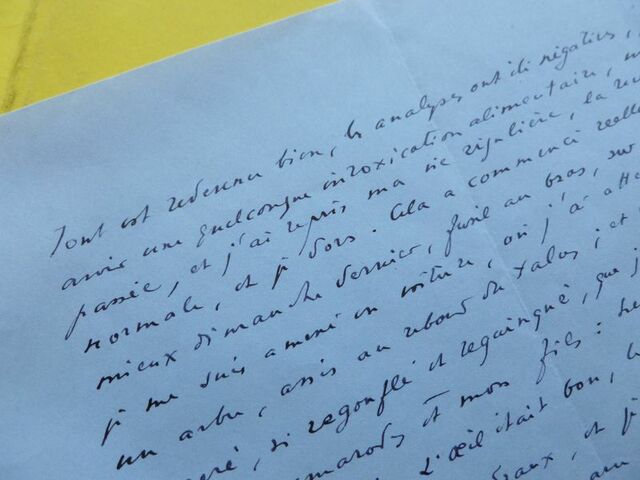 Tout est redevenu bien, les analyses ont été négatives,
avoir une quelconque intoxication alimentaire,
passée, et j'ai repris ma vie régulière, la
normale, et je dors. Cela a commencé
mieux dimanche dernier, fusil au bras, sur
je me suis amené en voiture, où j'ai
un arbre, assis au rebord du talus ; et
si regonflé et regaingué, que j
et mon fils :
L'œil était bon,
et j